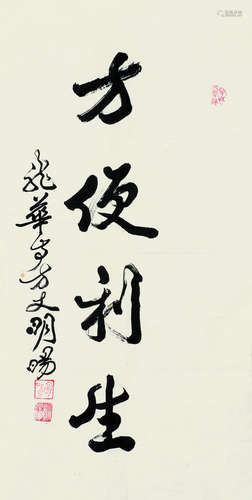 方便利生
龍華寺方丈明暘